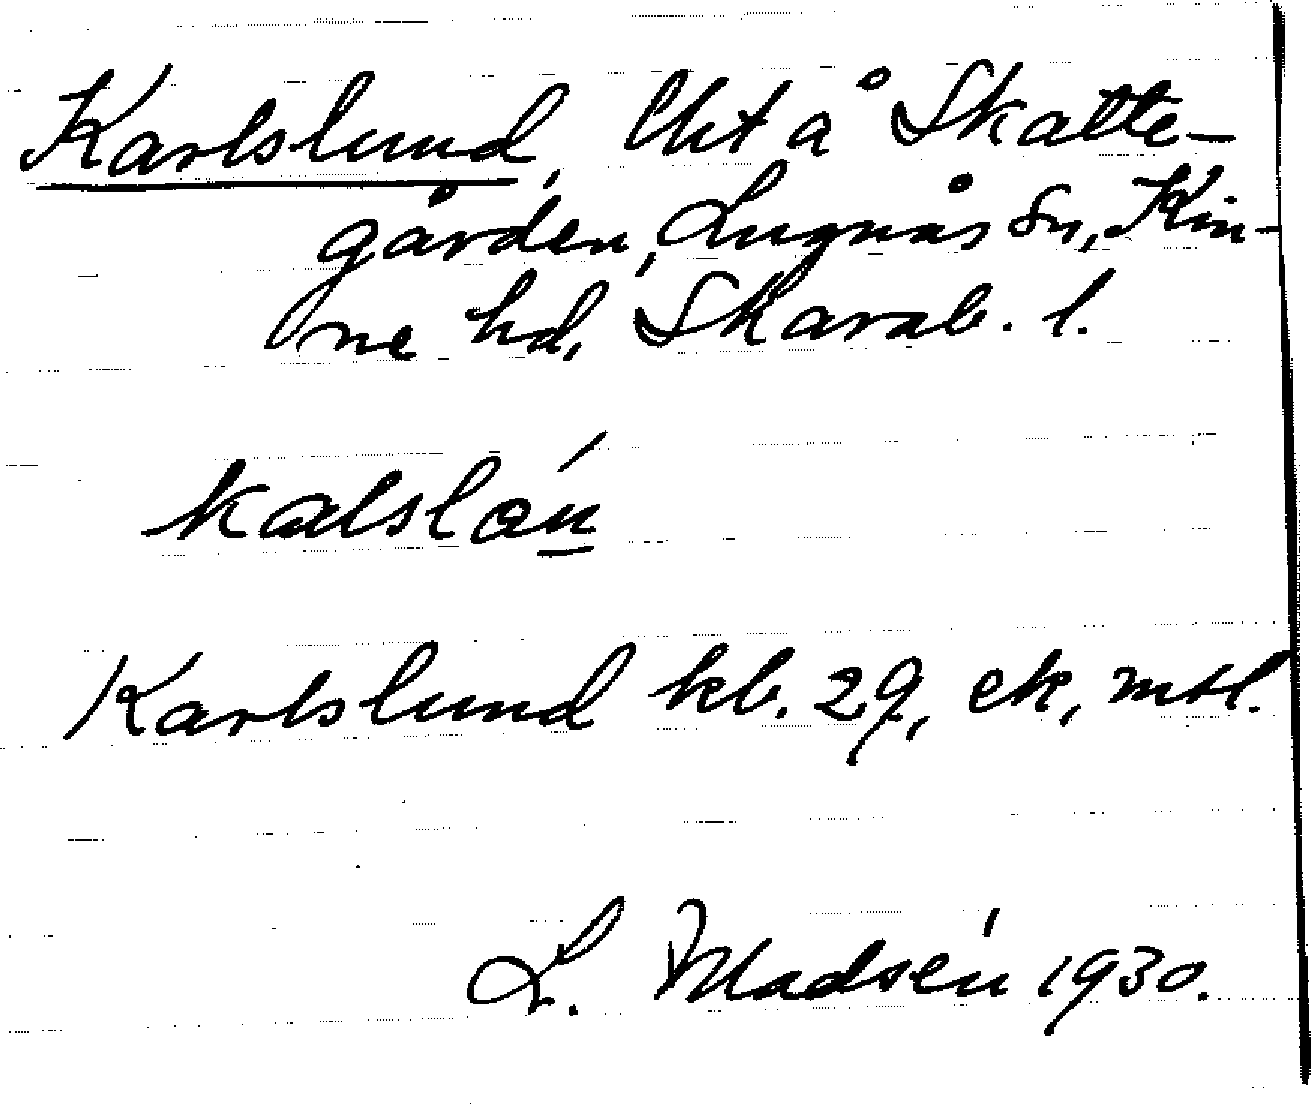 Karlslund, lht å Skatte-
gården, Lugnås sn, Kin-
ne hd, Skarab. l.
kalslón
Karlslund kb. 29, ek, mtl.
L. Madsén 1930.